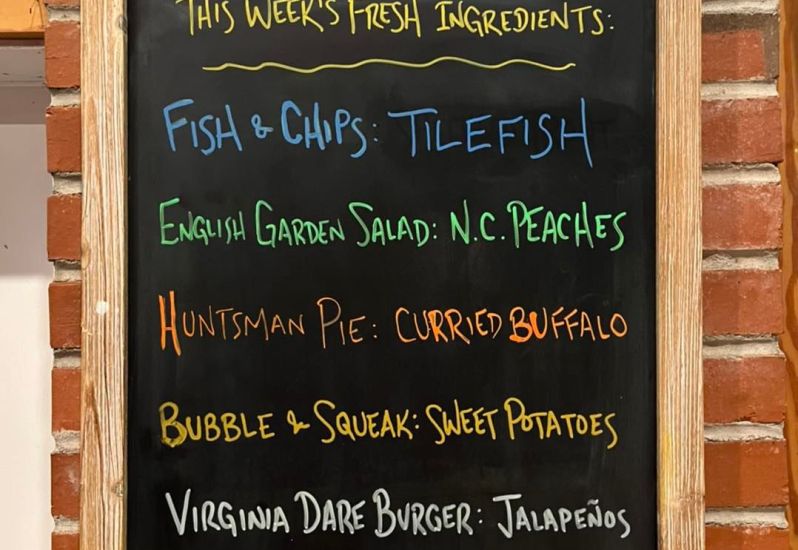 THIS WEEK'S FRESH INGREDIENTS:
FISH & CHIPS: TILEFISH
ENGLISH GARDEN SALAD: N.C. PEACHES
HUNTSMAN PIE: CURRIED BUFFALO
BUBBLE & SQUEAK: SWEET POTATOES
VIRGINIA DARE BURGER: JALAPEÑOS